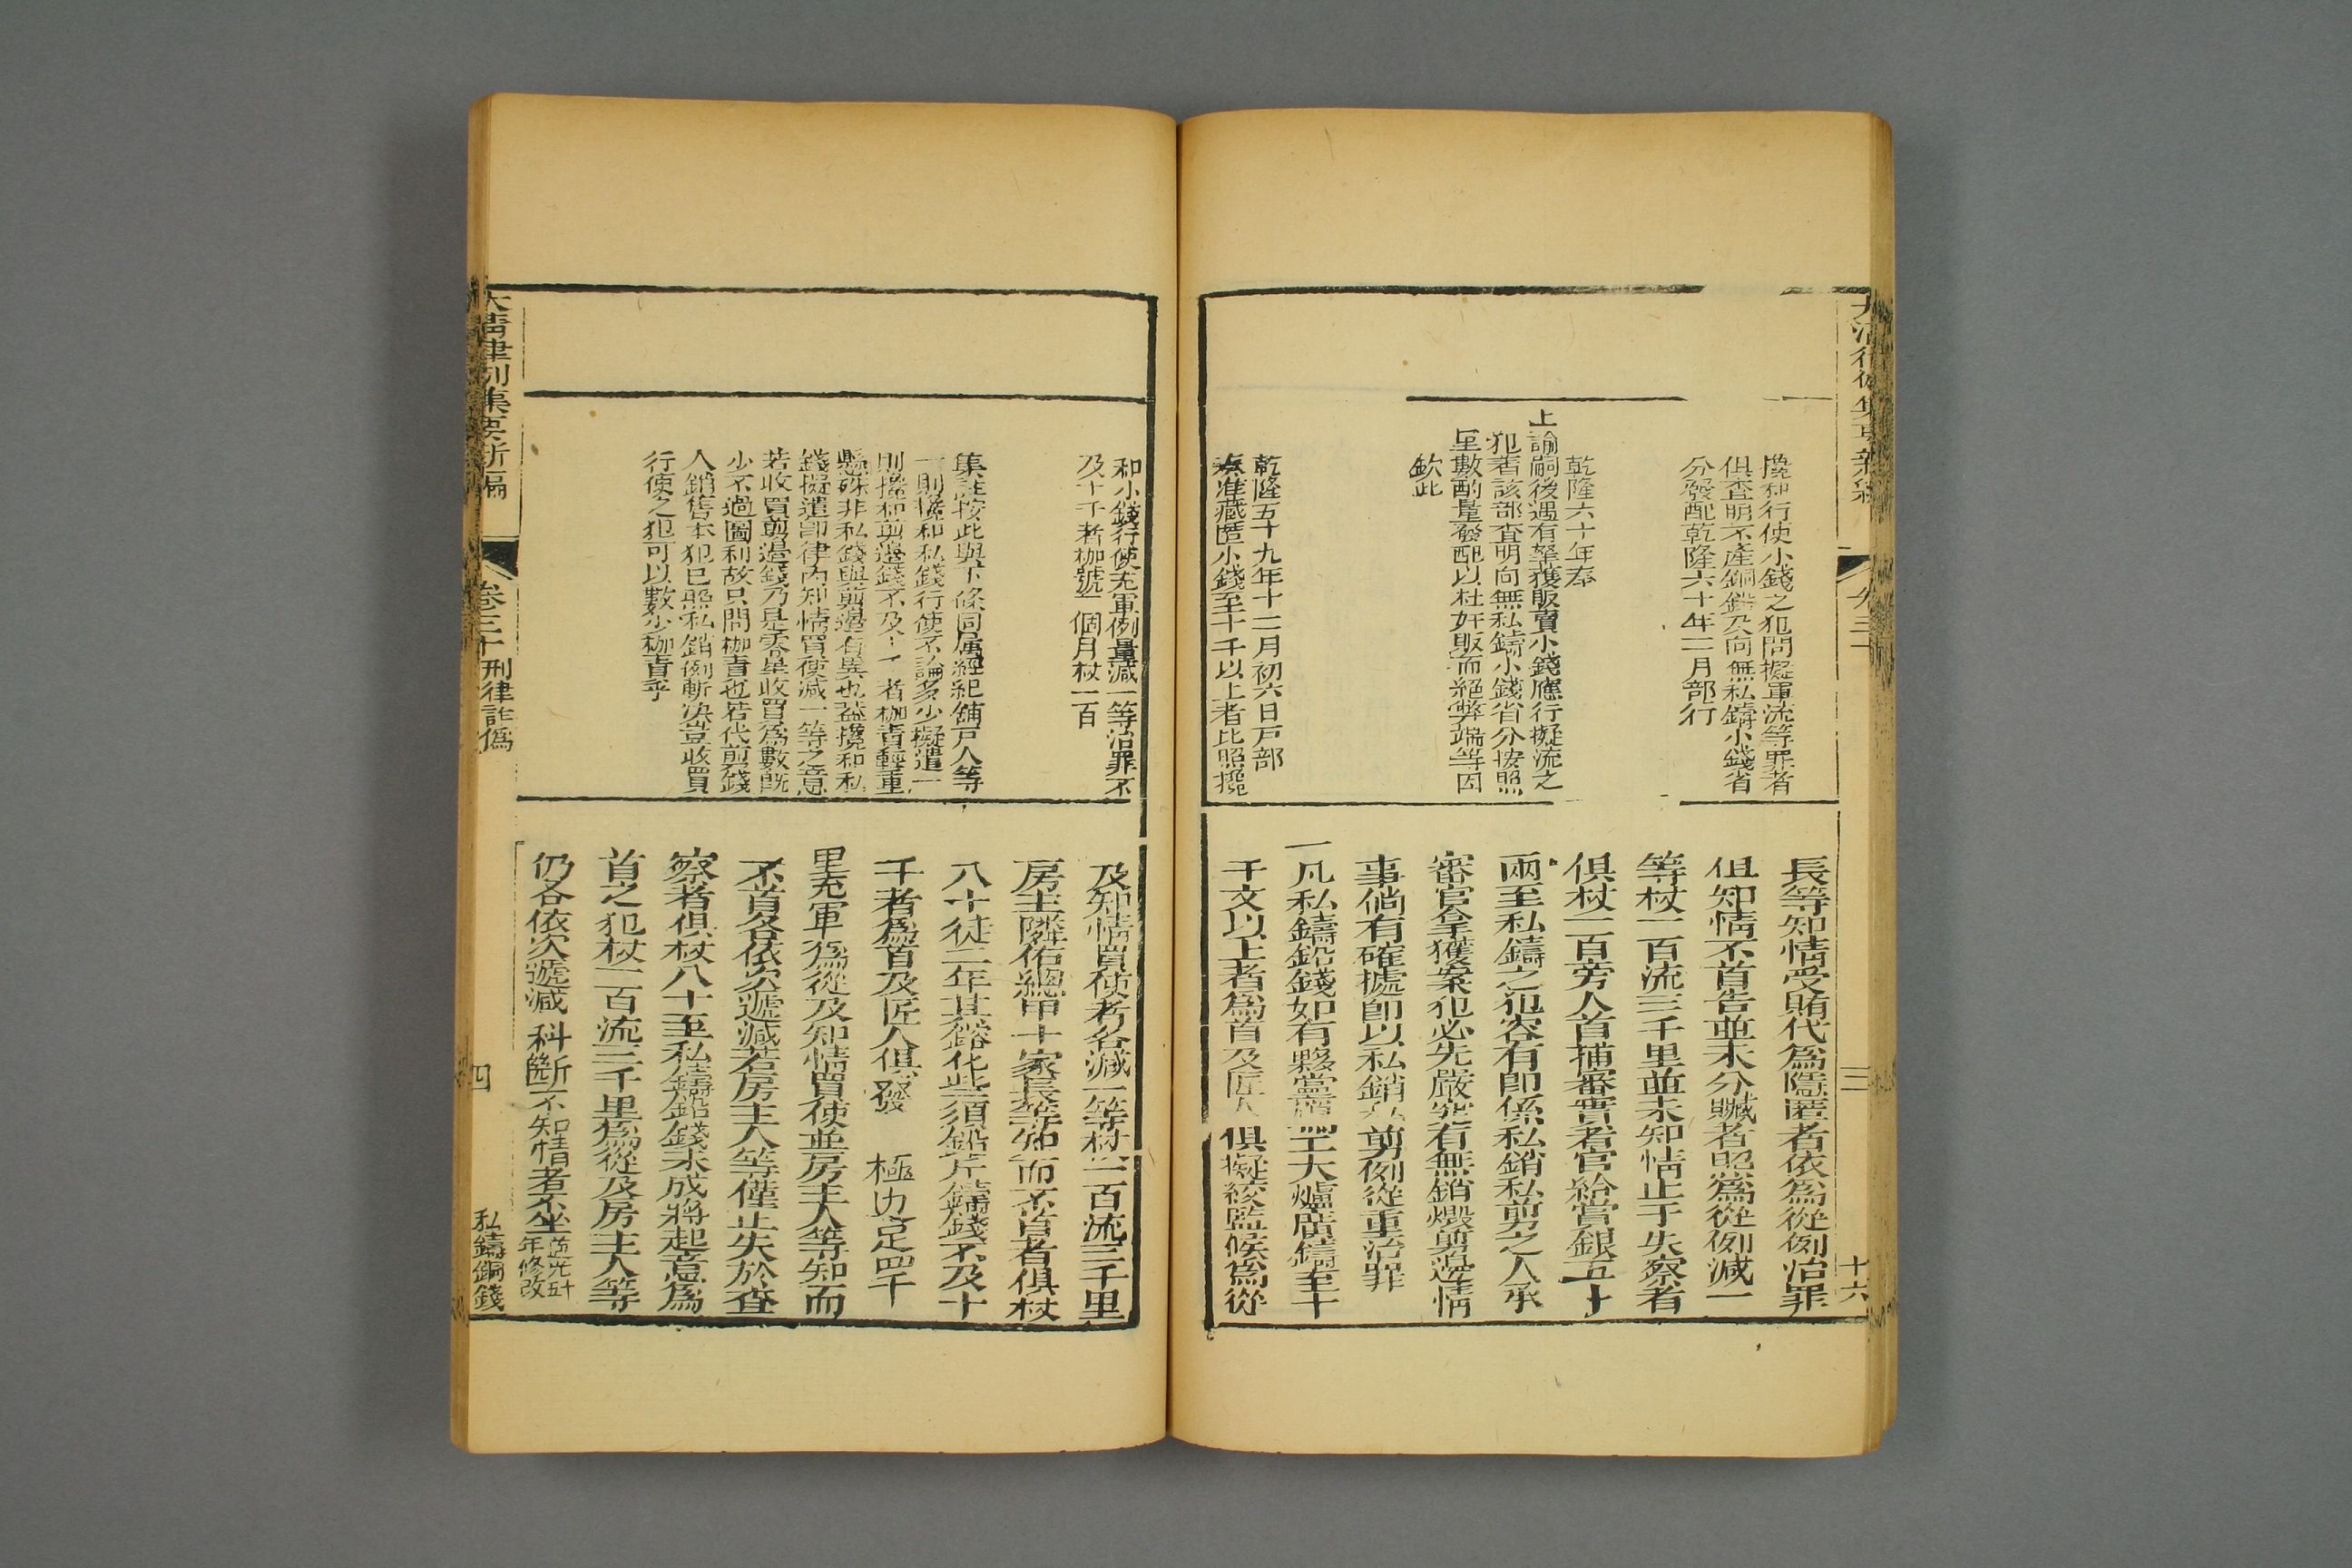 攙和行使小錢之犯問擬軍流等罪者
俱查明不產銅鉛及向無私鑄小錢省
分發配乾隆六十年二月部行
乾隆六十年奉
上諭嗣後遇有拏獲販賣小錢應行擬流之
犯著該部查明向無私鑄小錢省分按照
里數酌量發配以杜奸販而絕弊端等因
欽此
乾隆五十九年十二月初六日戸部
奏准藏匿小錢至十千以上者比照攙
長等知情受賄代為隱匿者依為從例治罪
但知情不首告並未分贓者照為從例減一
等杖一百流三千里並未知情止于失察者
俱杖一百旁人首捕審實者官給賞銀五十
兩至私鑄之犯容有即係私銷私剪之人承
審官拿獲案犯必先嚴究有無銷燬剪邊情
事倘有確據卽以私銷私剪例從重治罪
一凡私鑄鉛錢如有夥黨 工大爐廣鑄至十
千文以上者為首及匠人俱擬絞監候為從
三
十六
和小錢行使充軍例量減一等治罪不
及十千者枷號一個月杖一百
集註按此與下條同屬經紀舖戸人等
一則攙和私錢行使不論多少擬遣一
則攙和剪邊錢不及十千者枷責輕重
懸殊非私錢與剪邊有異也蓋攙和私
錢擬遣卽律內知情買使減一等之意
若收買剪邊錢乃是零星收買為數旣
少不過圖利故只問枷責也若代剪錢
人銷售本犯已照私銷例斬決豈收買
行使之犯可以數少枷責乎
及知情買使者各減一等杖一百流三千里
房主隣佑總甲十家長等知而不首者俱杖
八十徒二年其鎔化些須鉛斤鑄錢不及十
千者為首及匠人俱發 極边足四千
里充軍為從及知情買使並房主人等知而
不首各依次遞減若房主人等僅止失於查
察者俱杖八十至私鑄鉛錢未成將起意為
首之犯杖一百流三千里為從及房主人等
仍各依次遞減科斷不知情者不坐道光五
年修改
大清律例集要新編
卷三十 刑律詐僞
四
私鑄銅錢